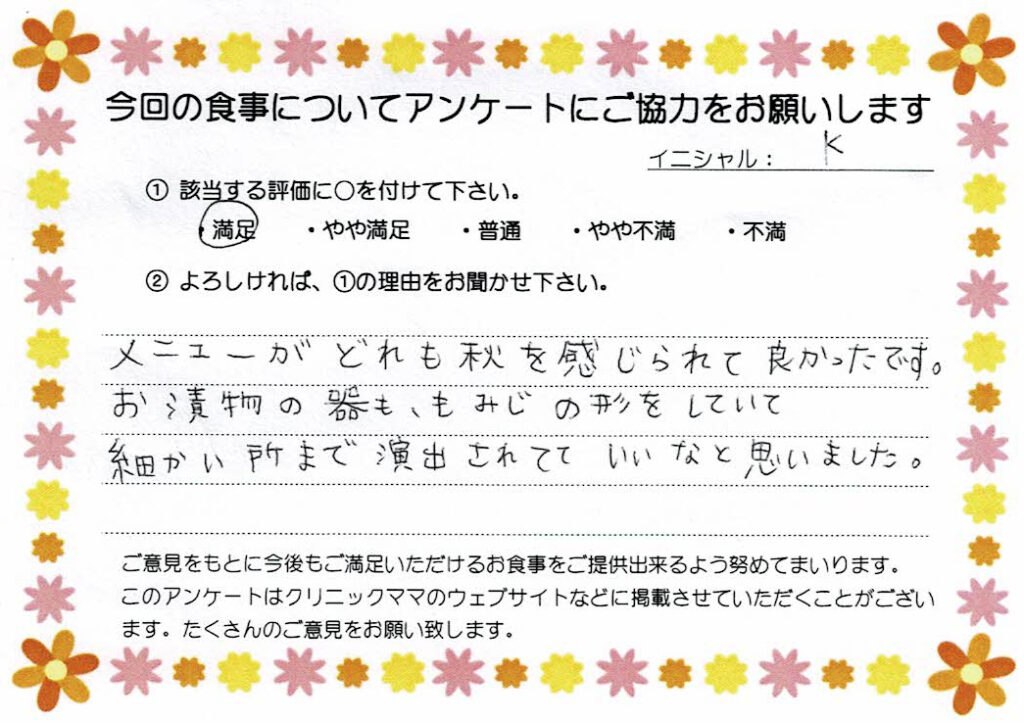 今回の食事についてアンケートにご協力をお願いします
イニシャル： K
① 該当する評価に○を付けて下さい。
・満足 ・やや満足 ・普通 ・やや不満 ・不満
② よろしければ、①の理由をお聞かせ下さい。
メニューがどれも秋を感じられて良かったです。
お漬物の器も、もみじの形をしていて
細かい所まで演出されてていいなと思いました。
ご意見をもとに今後もご満足いただけるお食事をご提供出来るよう努めてまいります。
このアンケートはクリニックママのウェブサイトなどに掲載させていただくことがござい
ます。たくさんのご意見をお願い致します。